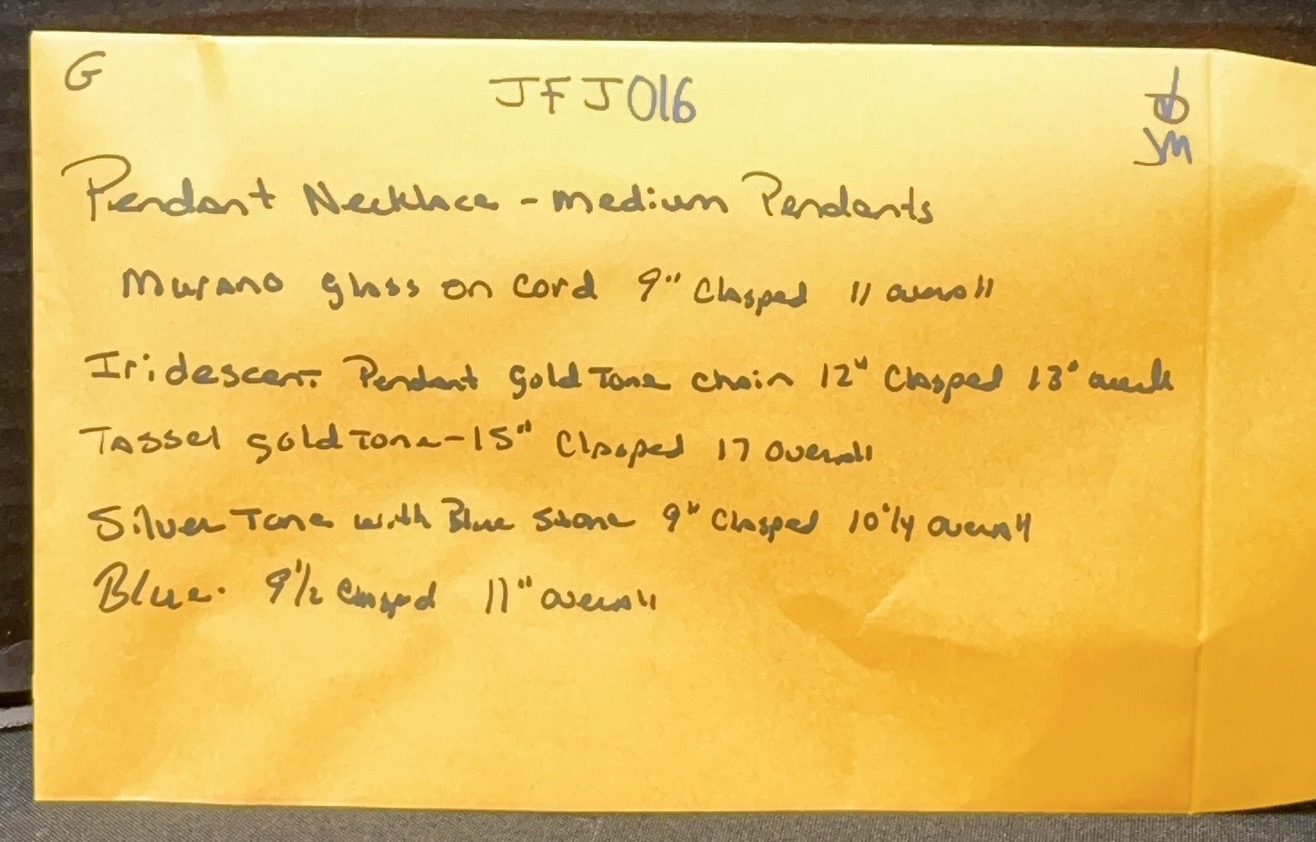 G
JFJ016
JM
Pendant Necklace - medium Pendants
Murano glass on cord 9" Clasped 11 overall
Iridescent Pendant gold Tone chain 12" Clasped 13" overall
Tassel gold Tone - 15" Clasped 17 overall
Silver Tone with Blue Stone 9" Clasped 10 1/4 overall
Blue. 9 1/2 Clasped 11" overall